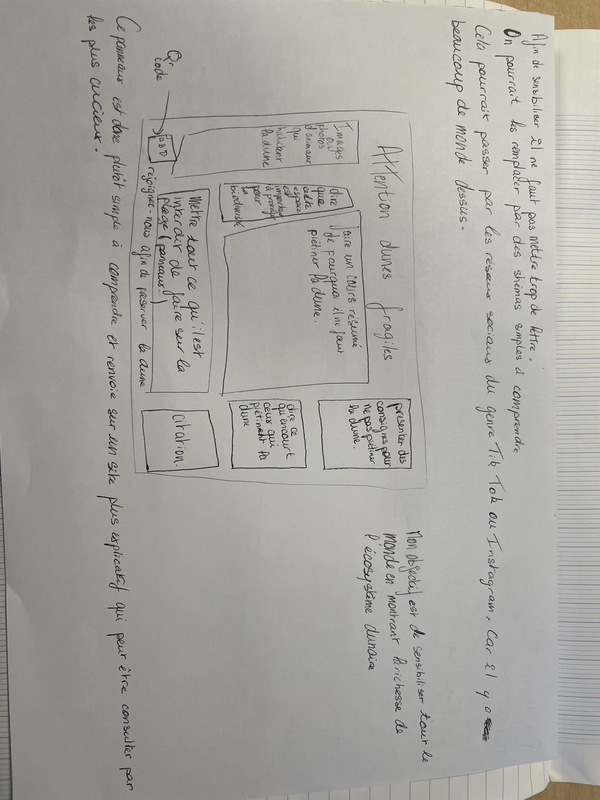 Afin de sensibiliser il ne faut pas mettre trop de lettre.
On pourrait les remplacer par des shémas simples à comprendre
Cela pourrait passer par les réseaux sociaux du genre Tik Tok ou Instagram. Car il y a
beaucoup de monde dessus.
Attention dunes fragiles
Images
ou
photos
d'animaux
qui
habitent
la dune
dire
que
cette
espace
est
important
à protéger
pour
sa
biodiversité
faire un cours résumé
de pourquoi il ne faut
piétiner la dune.
présenter des
consignes pour
ne pas piétiner
la dune.
dire ce
qu'encourt
ceux qui
piétinent la
dune
Mettre tout ce qu'il est
interdir de faire sur la
plage (panneaux!)
citation.
rejoignez-nous afin de préserver la dune
Qr
code
Mon objectif est de sensibiliser tout le
monde en montrant la richesse de
l'écosystème dunaire
Ce panneaux est donc plutôt simple à comprendre et renvoie sur un site plus explicatif qui peut être consulter par
les plus curieux.